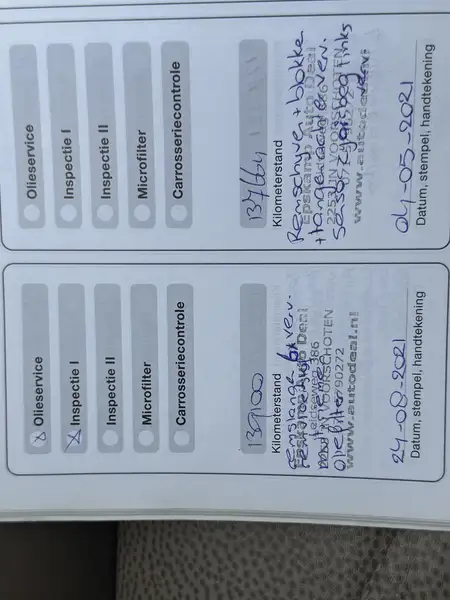 Olieservice
Inspectie I
Inspectie II
Microfilter
Carrosseriecontrole
139100
Kilometerstand
remslange 6x verv.
Epskamp Auto Deal
Leidseweg 386
VOORSCHOTEN
Oliefilter
90272
www.autodeal.nl
24-08-2021
Datum, stempel, handtekening
Olieservice
Inspectie I
Inspectie II
Microfilter
Carrosseriecontrole
137664
Kilometerstand
Remschyve + blokke
Epskamp Auto Deal
+ Handrem achter verv.
2251 VOORSCHOTEN
links
verv.
www.autodeal.nl
04-05-2021
Datum, stempel, handtekening